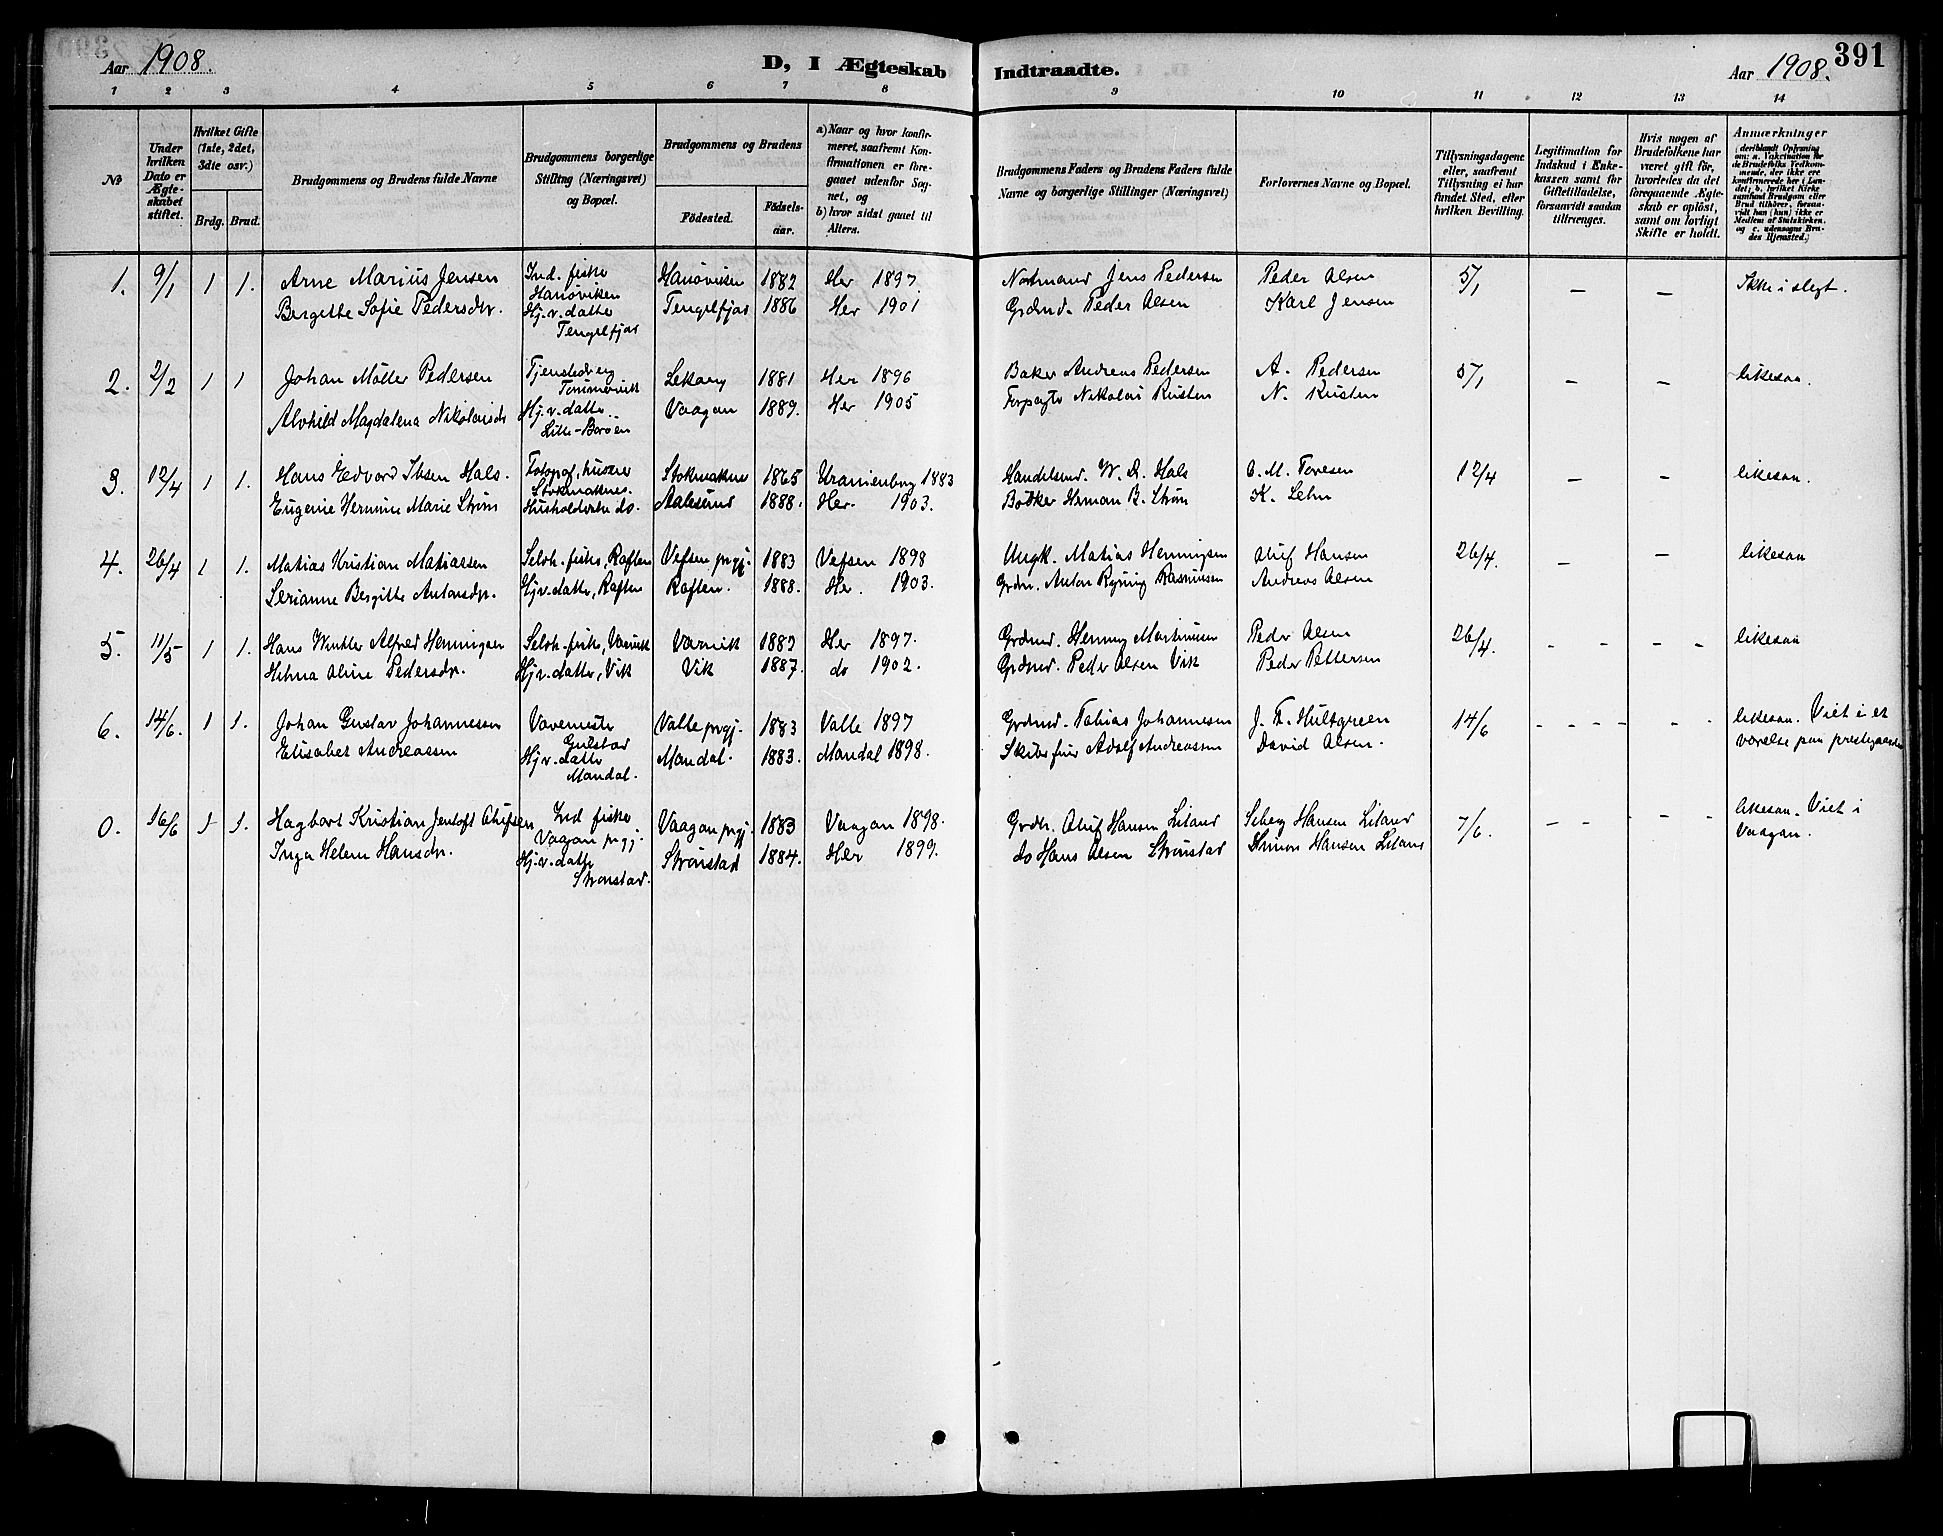 391
Aar 1908.
D, I Ægteskab Indtraadte.
Aar 1908.
1 2 3 4 5 6 7 8 9 10 11 12 13 14
№
Under hvilken Dato er Ægteskabet stiftet.
Hvilket Gifte (1ste, 2det, 3die osv.)
Brdg. Brud.
Brudgommens og Brudens fulde Navne
Brudgommens borgerlige Stilling (Næringsvei) og Bopæl.
Brudgommens og Brudens
Födested.
Födselsaar.
a) Naar og hvor konfirmeret, saafremt Konfirmationen er foregaaet udenfor Sognet, og
b) hvor sidst gaaet til Alters.
Brudgommens Faders og Brudens Faders fulde Navne og borgerlige Stillinger (Næringsvei)
Forlovernes Navne og Bopæl.
Tillysningsdagene eller, saafremt Tillysning ei har fundet Sted, efter hvilken Bevilling.
Legitimation for Indskud i Enkekassen samt for Giftetilladelse, forsaavidt saadan tiltrænges.
Hvis nogen af Brudefolkene har været gift för, hvorledes da det foregaaende Ægteskab er oplöst, samt om lovligt Skifte er holdt.
Anmærkninger (deriblandt Oplysning om: a. Vakcination for de Brudefolks Vedkommende, der ikke ere konfirmerede her i Landet; b. hvilket Kirkesamfund Brudgom eller Brud tilhörer, forsaavidt han (hun) ikke er Medlem af Statskirken, og c. udensogns Brudes Hjemsted.)
1. 9/1 1 1. Arne Marius Jensen Ind. fisker Hanøviken Hanøviken 1882 Her 1897. Nordmand Jens Pedersen Peder Olsen 5/1 – – Ikke i slegt.
Bergitte Sofie Pedersdtr. Hj.v. datter Tengelfjor Tengelfjor 1886 Her 1901 Grdmd. Peder Olsen Karl Jensen
2. 2/2 1 1 Johan Møller Pedersen Sekang 1881 Her 1896 Baker Andreas Pedersen A. Pedersen 5/1 – – likesaa.
Alvhild Magdalena Nikolaisdr Hj.v. datter Lille-Borøen Vaagan 1889. Her 1905 Forpagter Nikolai Rusten N. Rusten
3. 12/4 1 1. Hans Edvard Ibsen Hals. Fotograf, huseier Stokmarknes. Stokmarknes 1865 Uranienborg 1883 Handelsmd. W. D. Hals O. M. Toresen 12/4 – – likesaa.
Eugenie Hermine Marie Strøm Husholderske do. Aalesund 1888. Her. 1903. Bøtker Herman B. Strøm K. Lehn
4. 26/4 1 1. Matias Kristian Matiassen Selvh. fisker, Raften Vefsen prgj. 1883 Vefsen 1898 Ungk. Matias Henningsen Oluf Hansen 26/4 – – likesaa
Serianne Bergitte Antonsdr. Hj.v. datter, Raften Raften. 1888. Her. 1903. Grdm. Anton Ryning Rasmussen Andreas Olsen
5. 11/5 1 1. Hans Winkler Alfred Henningsen Selvh. fisker, Vornvik Vornvik 1882 Her 1897. Grdmd. Henning Martinusen Peder Olsen 26/4. - - - - likesaa
Helma Oline Pedersdr. Hj.v. datter, Vik Vik 1887. do 1902. Grdmd. Peder Olsen Vik Peder Pettersen
6. 14/6. 1 1. Johan Gustav Johannesen Vævemester Gulstad Valle prgj. 1883 Valle 1897 Grdmd. Tobias Johannesen J. F. Hultgreen 14/6 - - - - - - likesaa. Viet i et
Elisabet Andreassen Hj.v. datter Mandal. Mandal. 1883. Mandal 1898. Skibsfører Adolf Andreassen David Olsen. værelse paa prestegaarden
0. 16/6 1 1. Hagbart Kristian Jentoft Olufsen Ind fisker Vaagan prgj. Vaagan prgj. 1883 Vaagan 1898. Grdm. Oluf Hansen Liland Seberg Hansen Liland 7/6. – – - - likesaa. Viet i
Inga Helene Hansdr. Hj.v. datter Strønstad. Strønstad 1884. Her 1899. do Hans Olsen Strønstad Simon Hansen Liland Vaagan.